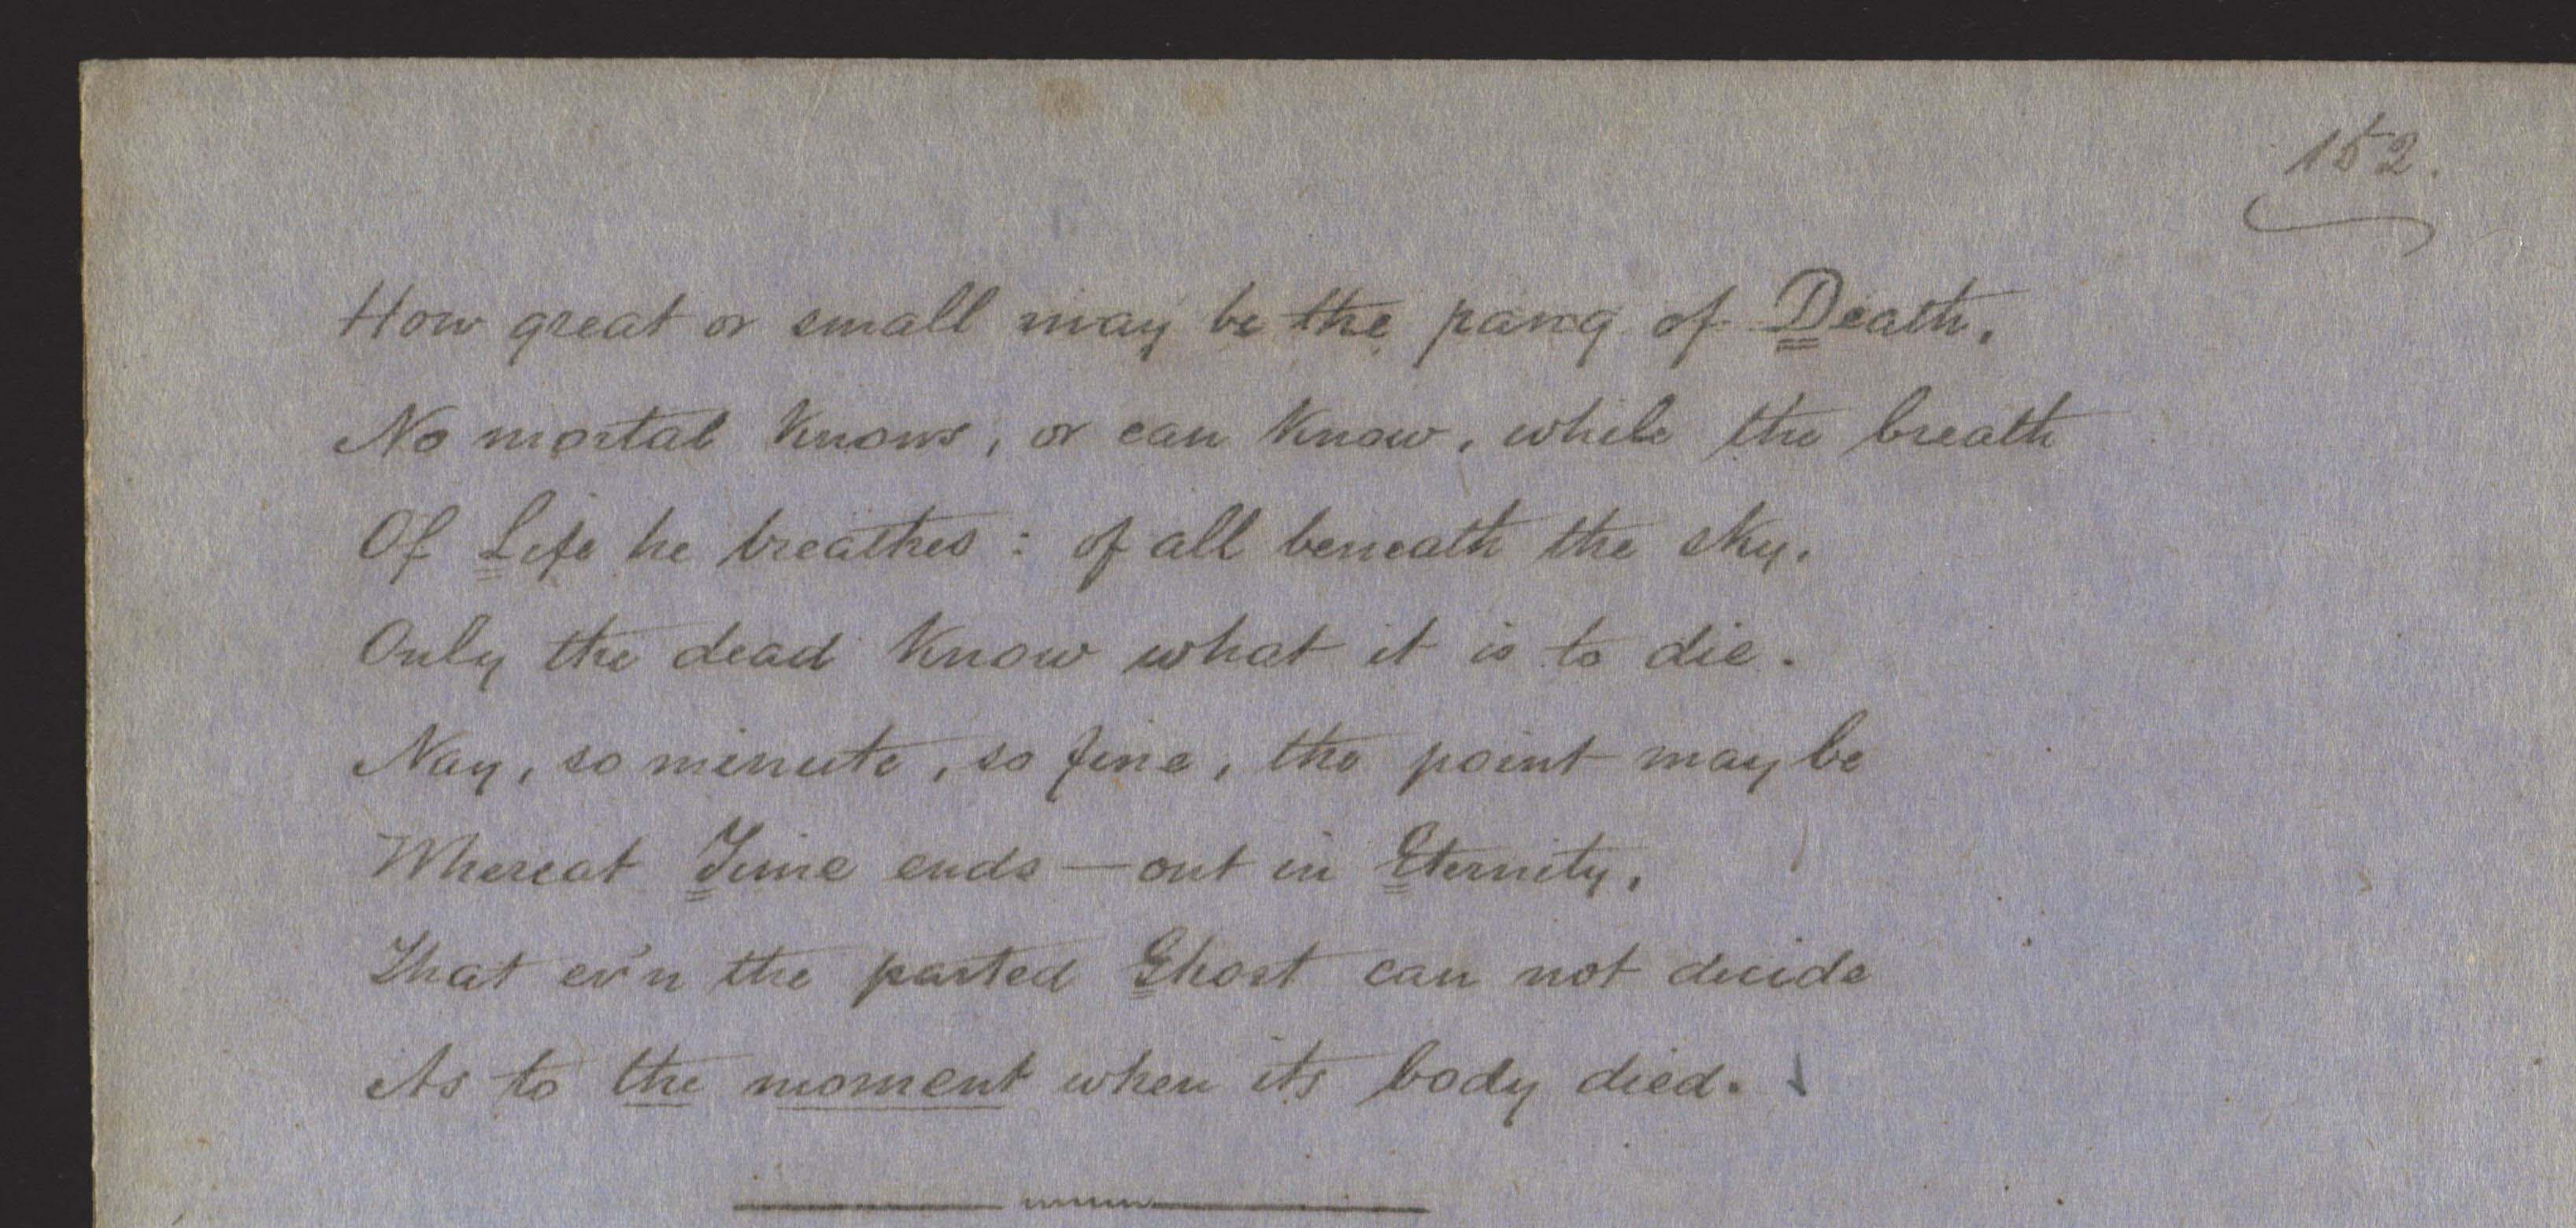 152.
How great or small may be the pang of Death,
No mortal knows, or can know, while the breath
Of Life he breathes: of all beneath the sky,
Only the dead know what it is to die.
Nay, so minute, so fine, the point may be
Whereat Time ends—out in Eternity,
That ev'n the parted Ghost can not decide
As to the moment when its body died.